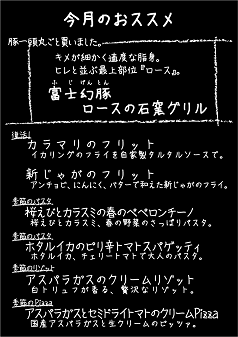 今月のおススメ
豚一頭丸ごと買いました。
キメが細かく適度な脂身。
ヒレと並ぶ最上部位『ロース』。
ふじげんとん
富士幻豚
ロースの石窯グリル
復活！
カラマリのフリット
イカリングのフライを自家製タルタルソースで。
新じゃがのフリット
アンチョビ、にんにく、バターで和えた新じゃがのフライ。
季節のパスタ
桜えびとカラスミの春のペペロンチーノ
桜えびとカラスミ、春の野菜のさっぱりパスタ。
季節のパスタ
ホタルイカのピリ辛トマトスパゲッティ
ホタルイカ、チェリートマトで大人のパスタ。
季節のリゾット
アスパラガスのクリームリゾット
白トリュフが香る、贅沢なリゾット。
季節のPizza
アスパラガスとセミドライトマトのクリームPizza
国産アスパラガスと生クリームのピッツァ。